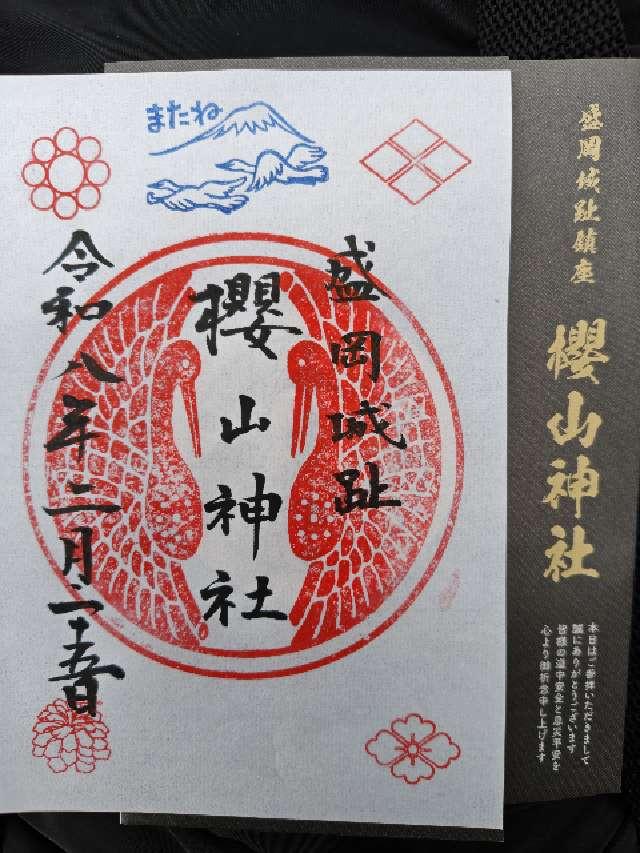 またね
盛岡城趾
櫻山神社
令和八年二月二十五日
盛岡城趾鎮座
櫻山神社
本日はご参拝いただきまして
誠にありがとうございます
皆様の道中安全と無事平安を
心より御祈念申し上げます